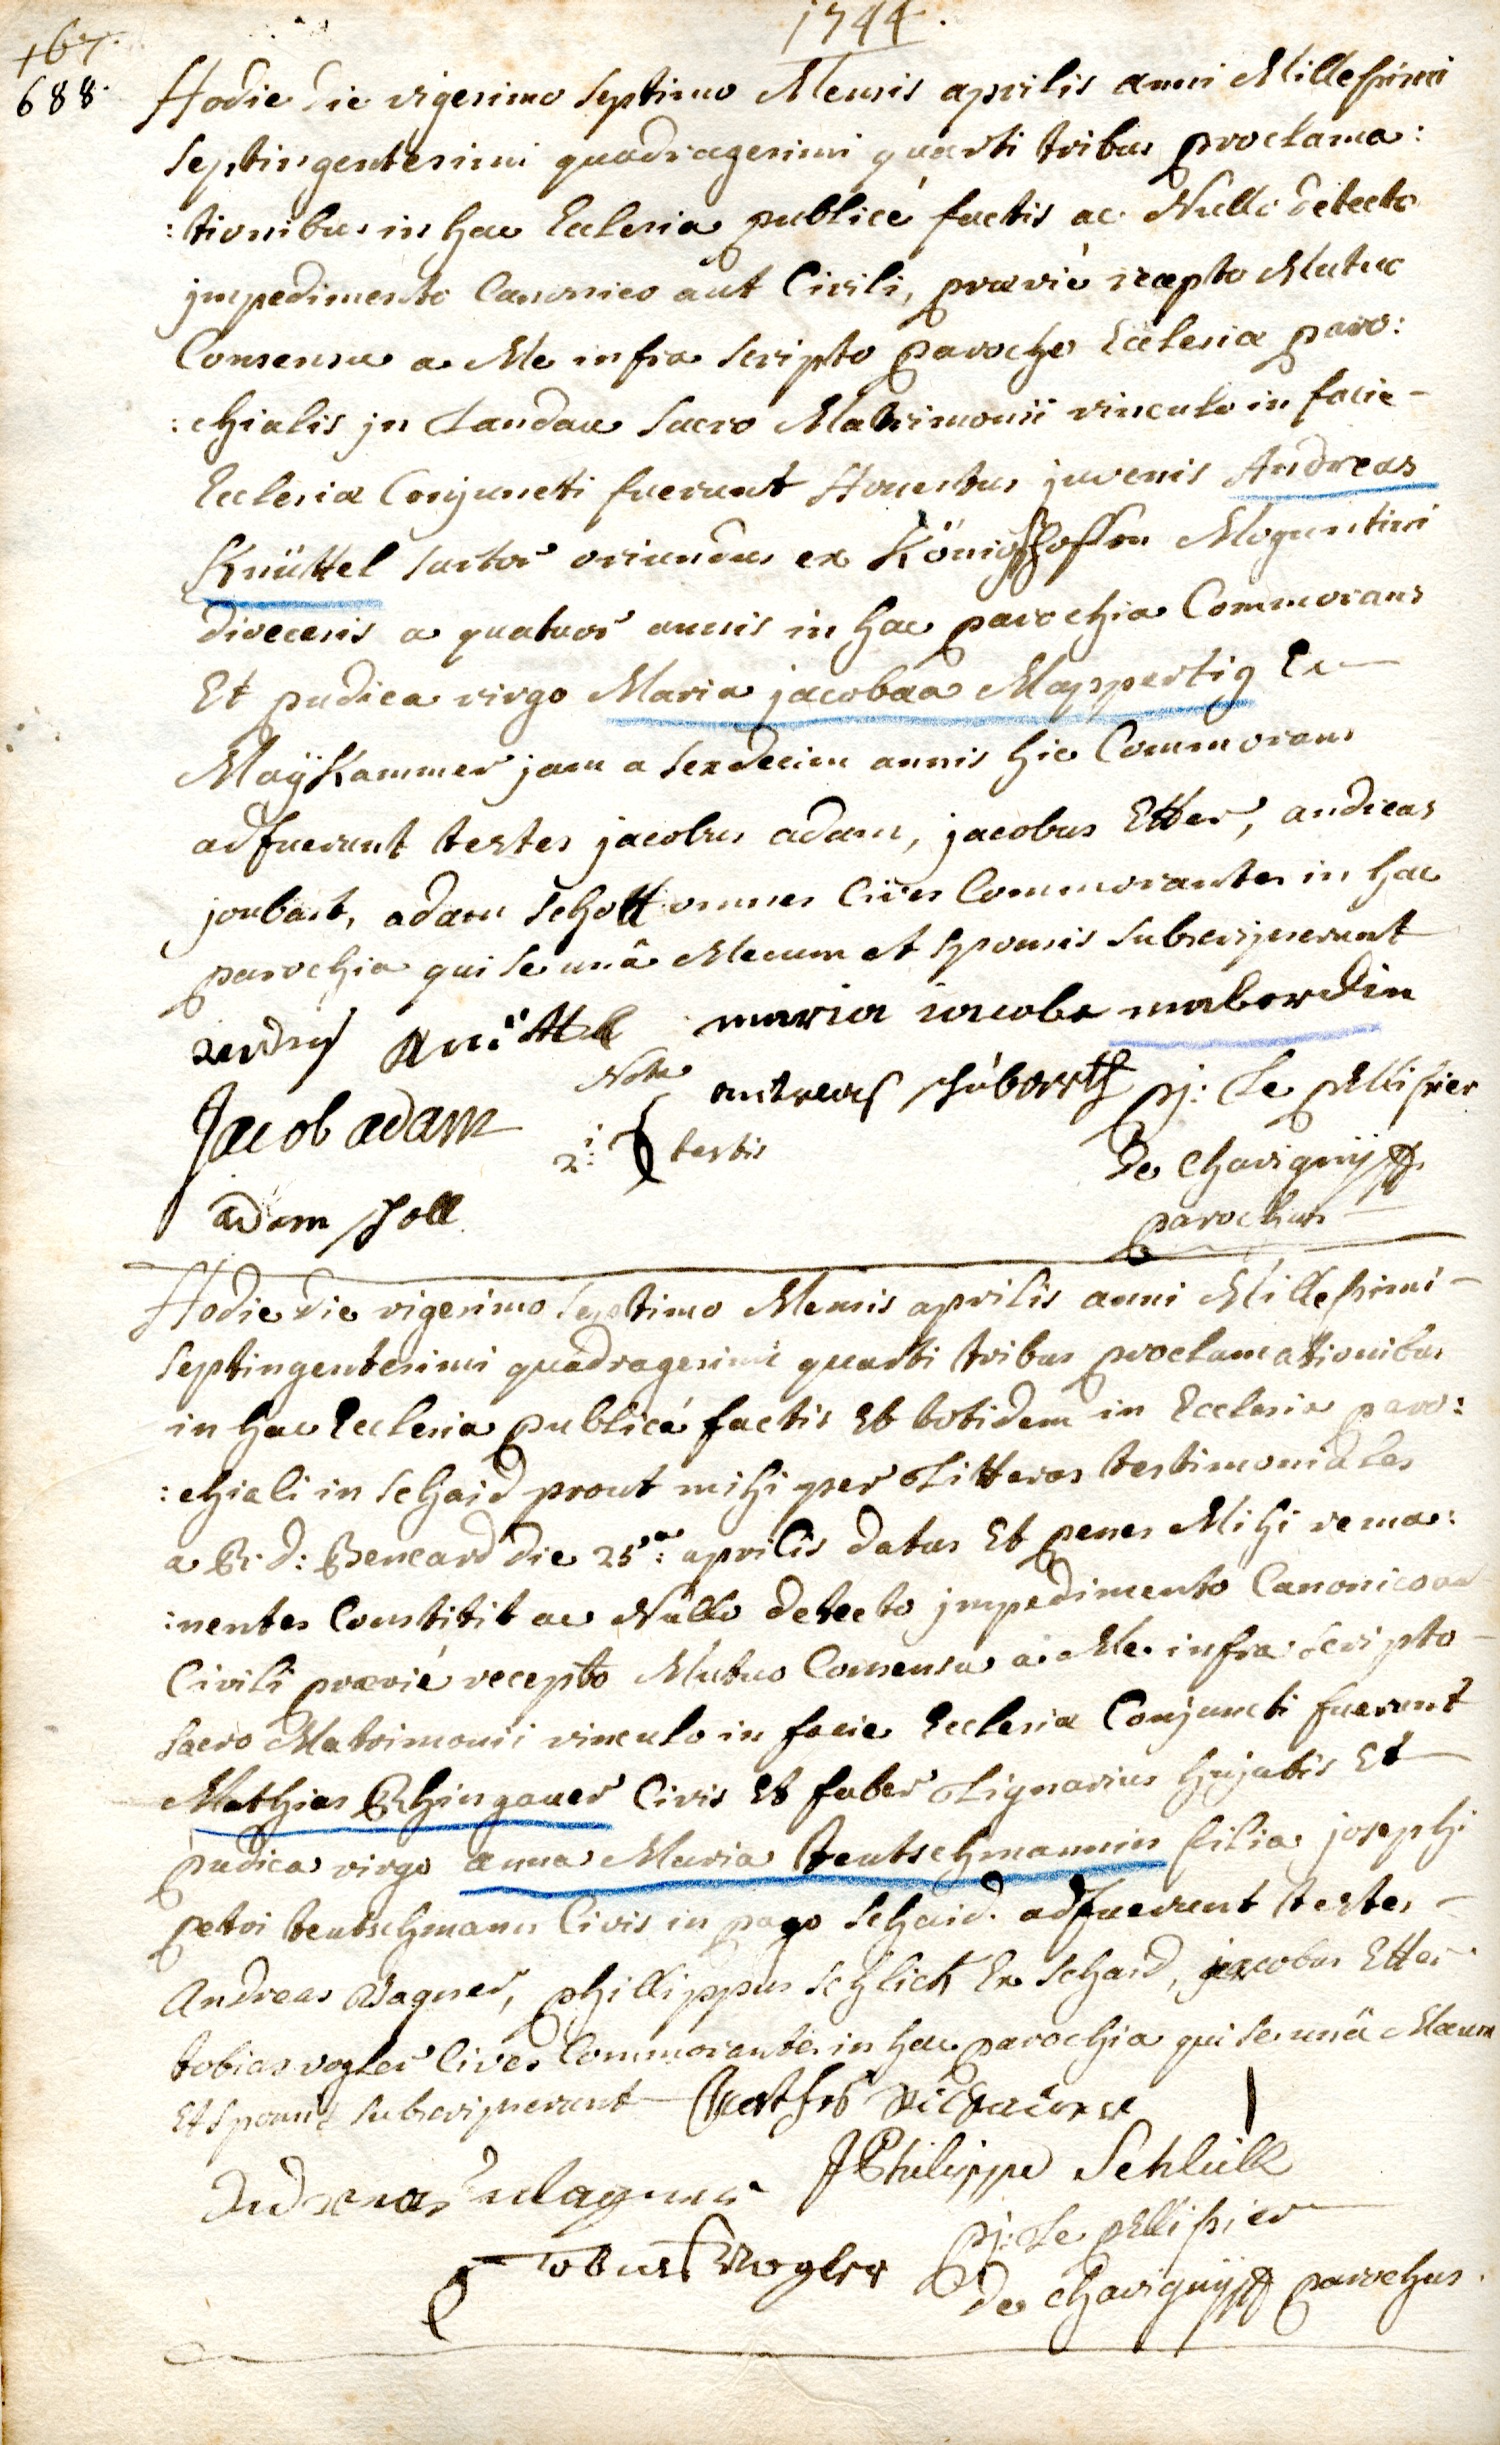 1744.
167.
688.
Hodie die vigesimo septimo Mensis aprilis anni Millesimi
septingentesimi quadragesimi quarti tribus proclama:
:tionibus in hac Ecclesia publicé factis ac Nullo detecto
jmpedimento Canonico aut Civili, prævié recepto Mutuo
Consensu a Me infra scripto parocho Ecclesiæ paro:
:chialis jn Landau sacro Matrimonii vinculo in facie
Ecclesiæ Conjuncti fuerunt Honestus juvenis Andreas
Knüttel sartor oriundus ex Königshoffen Moguntini
dioecesis a quatuor annis in hac parochia Commorans
Et pudica virgo Maria jacobaa Mappertig Ex
Maÿkammer jam a sexdecim annis hic Commorans
adfuerunt testes jacobus adam, jacobus Etter, andreas
joubart, adam schott omnes Cives Commorantes in hac
parochia qui se unâ Mecum et sponsis subscripserunt
andres Knüttel maria iacobe maberdin
Nota
Jacob adam andreas schubarth pj: Le pellissier
1: 2: testis de chavignÿ
adam schott parochus
Hodie die vigesimo septimo Mensis aprilis anni Millesimi
septingentesimi quadragesimi quarti tribus proclamationibus
in hac Ecclesia publicé factis Et totidem in Ecclesia paro:
:chiali in schaid prout mihi per Litteras testimoniales
a R: d: Bencard die 25a: aprilis datas Et penes Mihi rema:
:nentes Constitit ac Nullo detecto jmpedimento Canonico
Civili prævié recepto Mutuo Consensu a Me infra scripto
sacro Matrimonii vinculo in facie Ecclesiæ Conjuncti fuerunt
Mathias Rhingauer Civis Et faber Lignarius hujatis Et
pudica virgo anna Maria teutschmannin filia josephi
petri teutschmann Civis in pago schaid. adfuerunt testes
Andreas Wagner, phillippus schlick Ex schaid, jacobus Etter
tobias vogler Cives Commorantes in hac parochia qui se unâ Mecum
Et sponsis subscripserunt
J Philippe Schlick
Andreas Wagner
pj: Le pellissier
Tobias Vogler
de chavignÿ parochus.